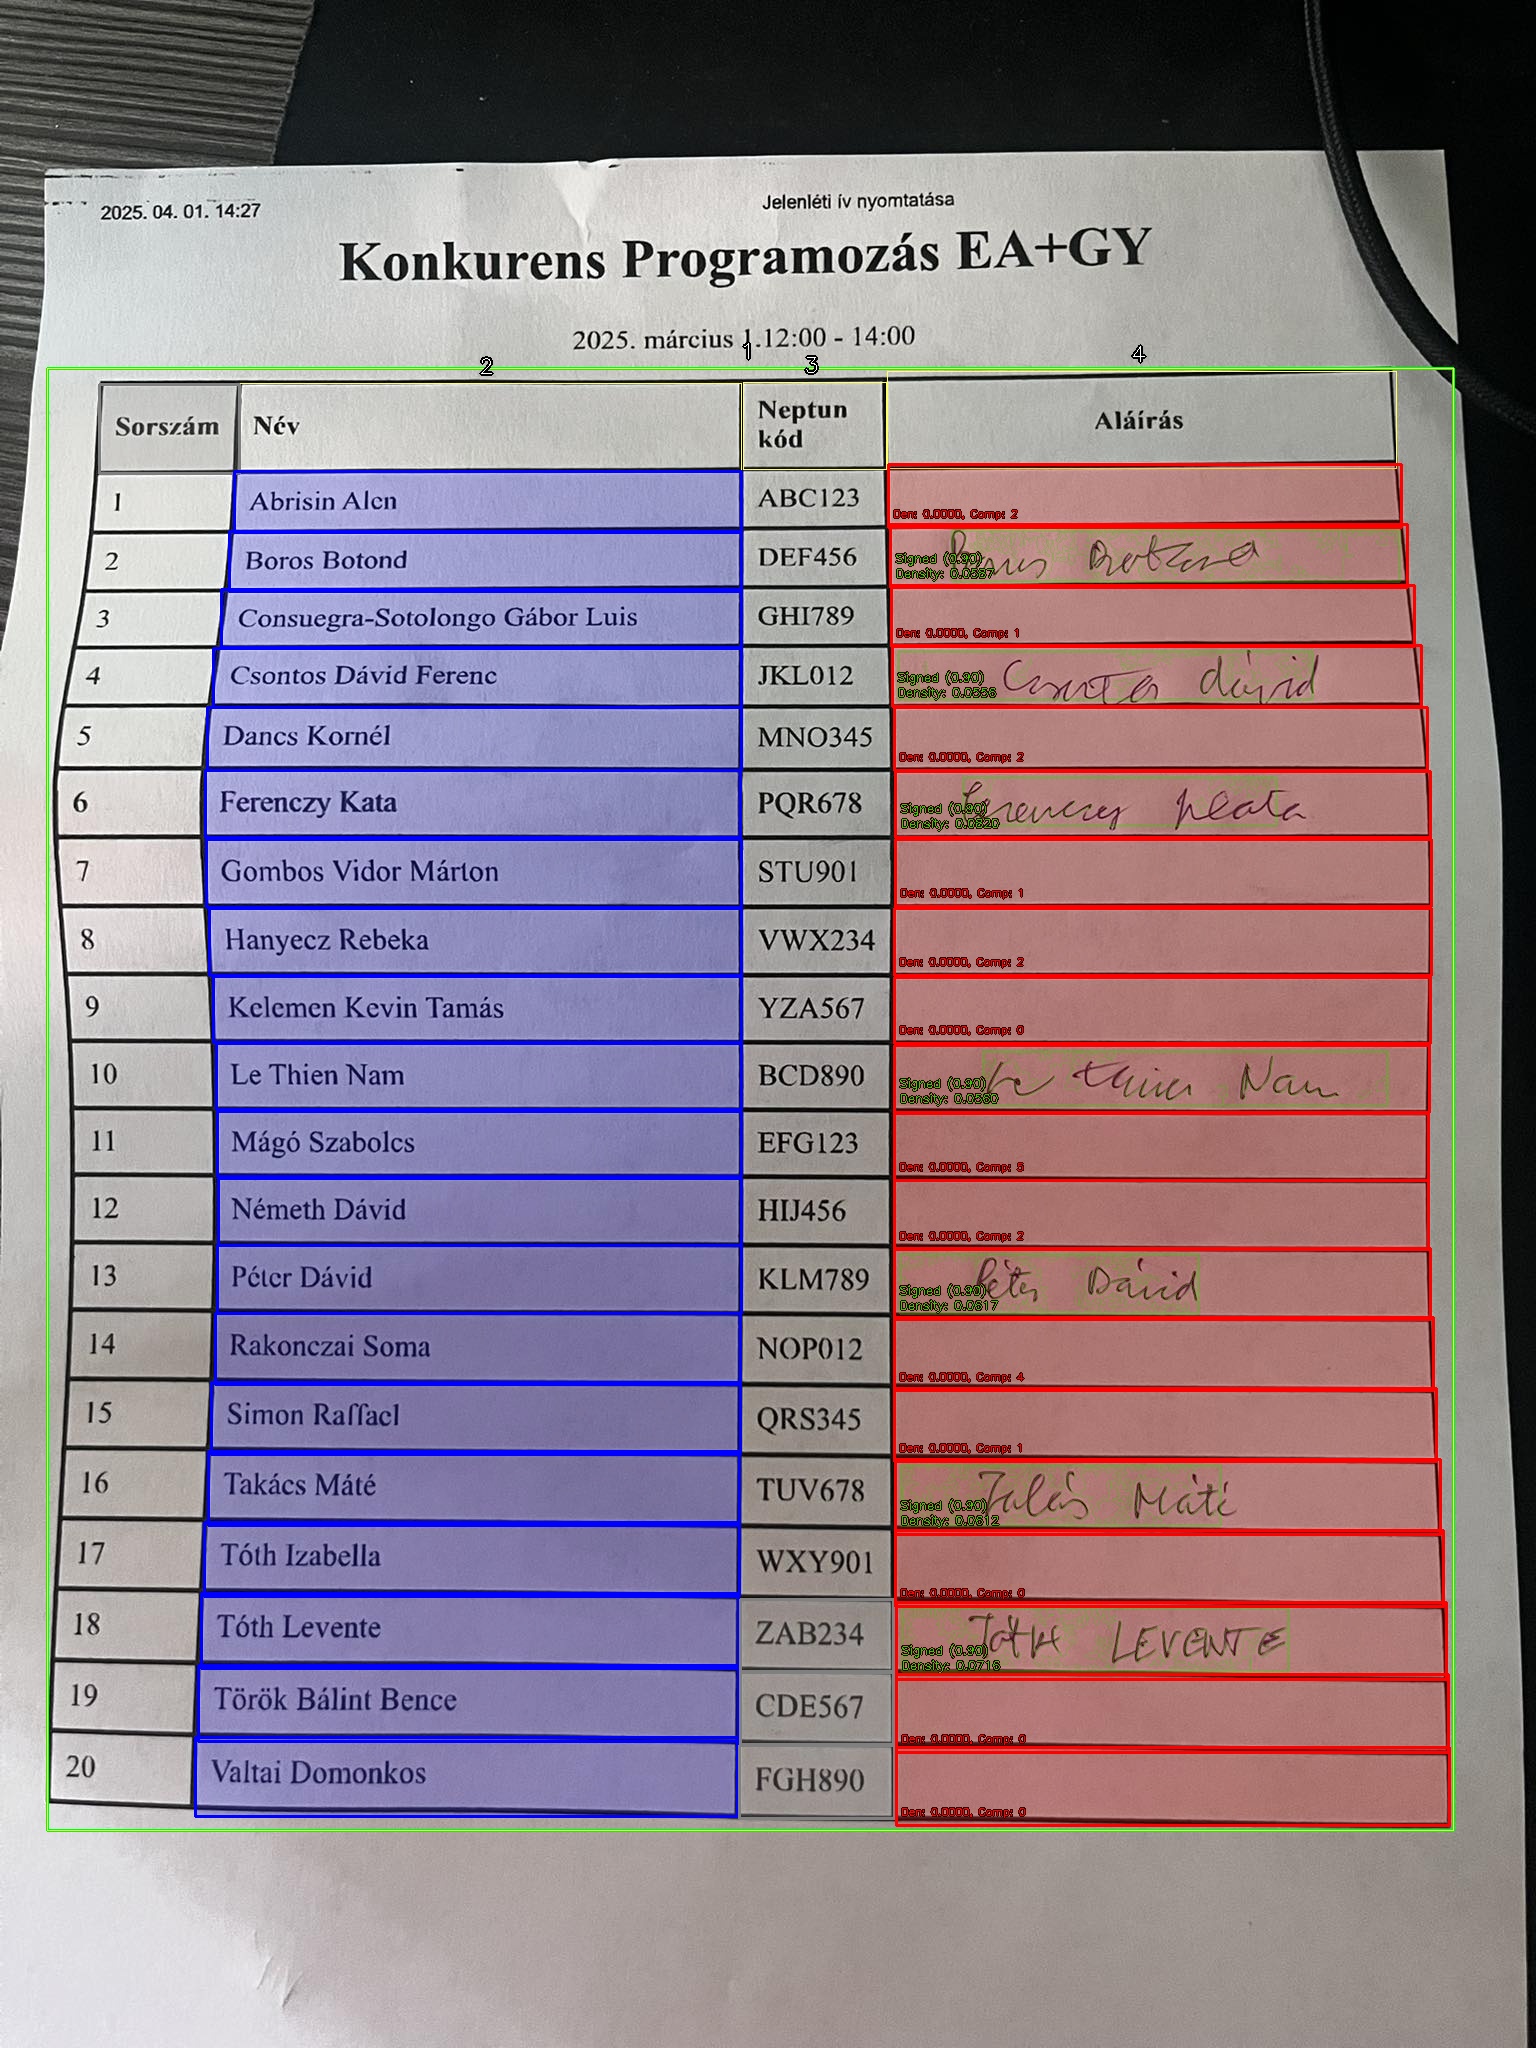 2025. 04. 01. 14:27
Jelenléti ív nyomtatása
Konkurens Programozás EA+GY
2025. március 1.12:00 - 14:00
1
2
3
4
Sorszám Név Neptun kód Aláírás
1 Abrisin Alen ABC123
Den: 0.0000, Comp: 2
2 Boros Botond DEF456 Boros Botond
Signed (0.90)
3 Consuegra-Sotolongo Gábor Luis GHI789
Den: 0.0000, Comp: 1
4 Csontos Dávid Ferenc JKL012 Csontos dávid
Signed (0.90)
Density: 0.0556
5 Dancs Kornél MNO345
Den: 0.0000, Comp: 2
6 Ferenczy Kata PQR678 Ferenczy Kata
Signed (0.90)
Density: 0.0620
7 Gombos Vidor Márton STU901
Den: 0.0000, Comp: 1
8 Hanyecz Rebeka VWX234
Den: 0.0000, Comp: 2
9 Kelemen Kevin Tamás YZA567
Den: 0.0000, Comp: 0
10 Le Thien Nam BCD890 Le Thien Nam
Signed (0.90)
Density: 0.0560
11 Mágó Szabolcs EFG123
Den: 0.0000, Comp: 5
12 Németh Dávid HIJ456
Den: 0.0000, Comp: 2
13 Péter Dávid KLM789 Péter Dávid
Signed (0.90)
Density: 0.0617
14 Rakonczai Soma NOP012
Den: 0.0000, Comp: 4
15 Simon Raffael QRS345
Den: 0.0000, Comp: 1
16 Takács Máté TUV678 Máté
Signed (0.90)
Density: 0.0612
17 Tóth Izabella WXY901
Den: 0.0000, Comp: 0
18 Tóth Levente ZAB234 TótH LEVENTE
Signed (0.90)
Density: 0.0716
19 Török Bálint Bence CDE567
Den: 0.0000, Comp: 0
20 Valtai Domonkos FGH890
Den: 0.0000, Comp: 0